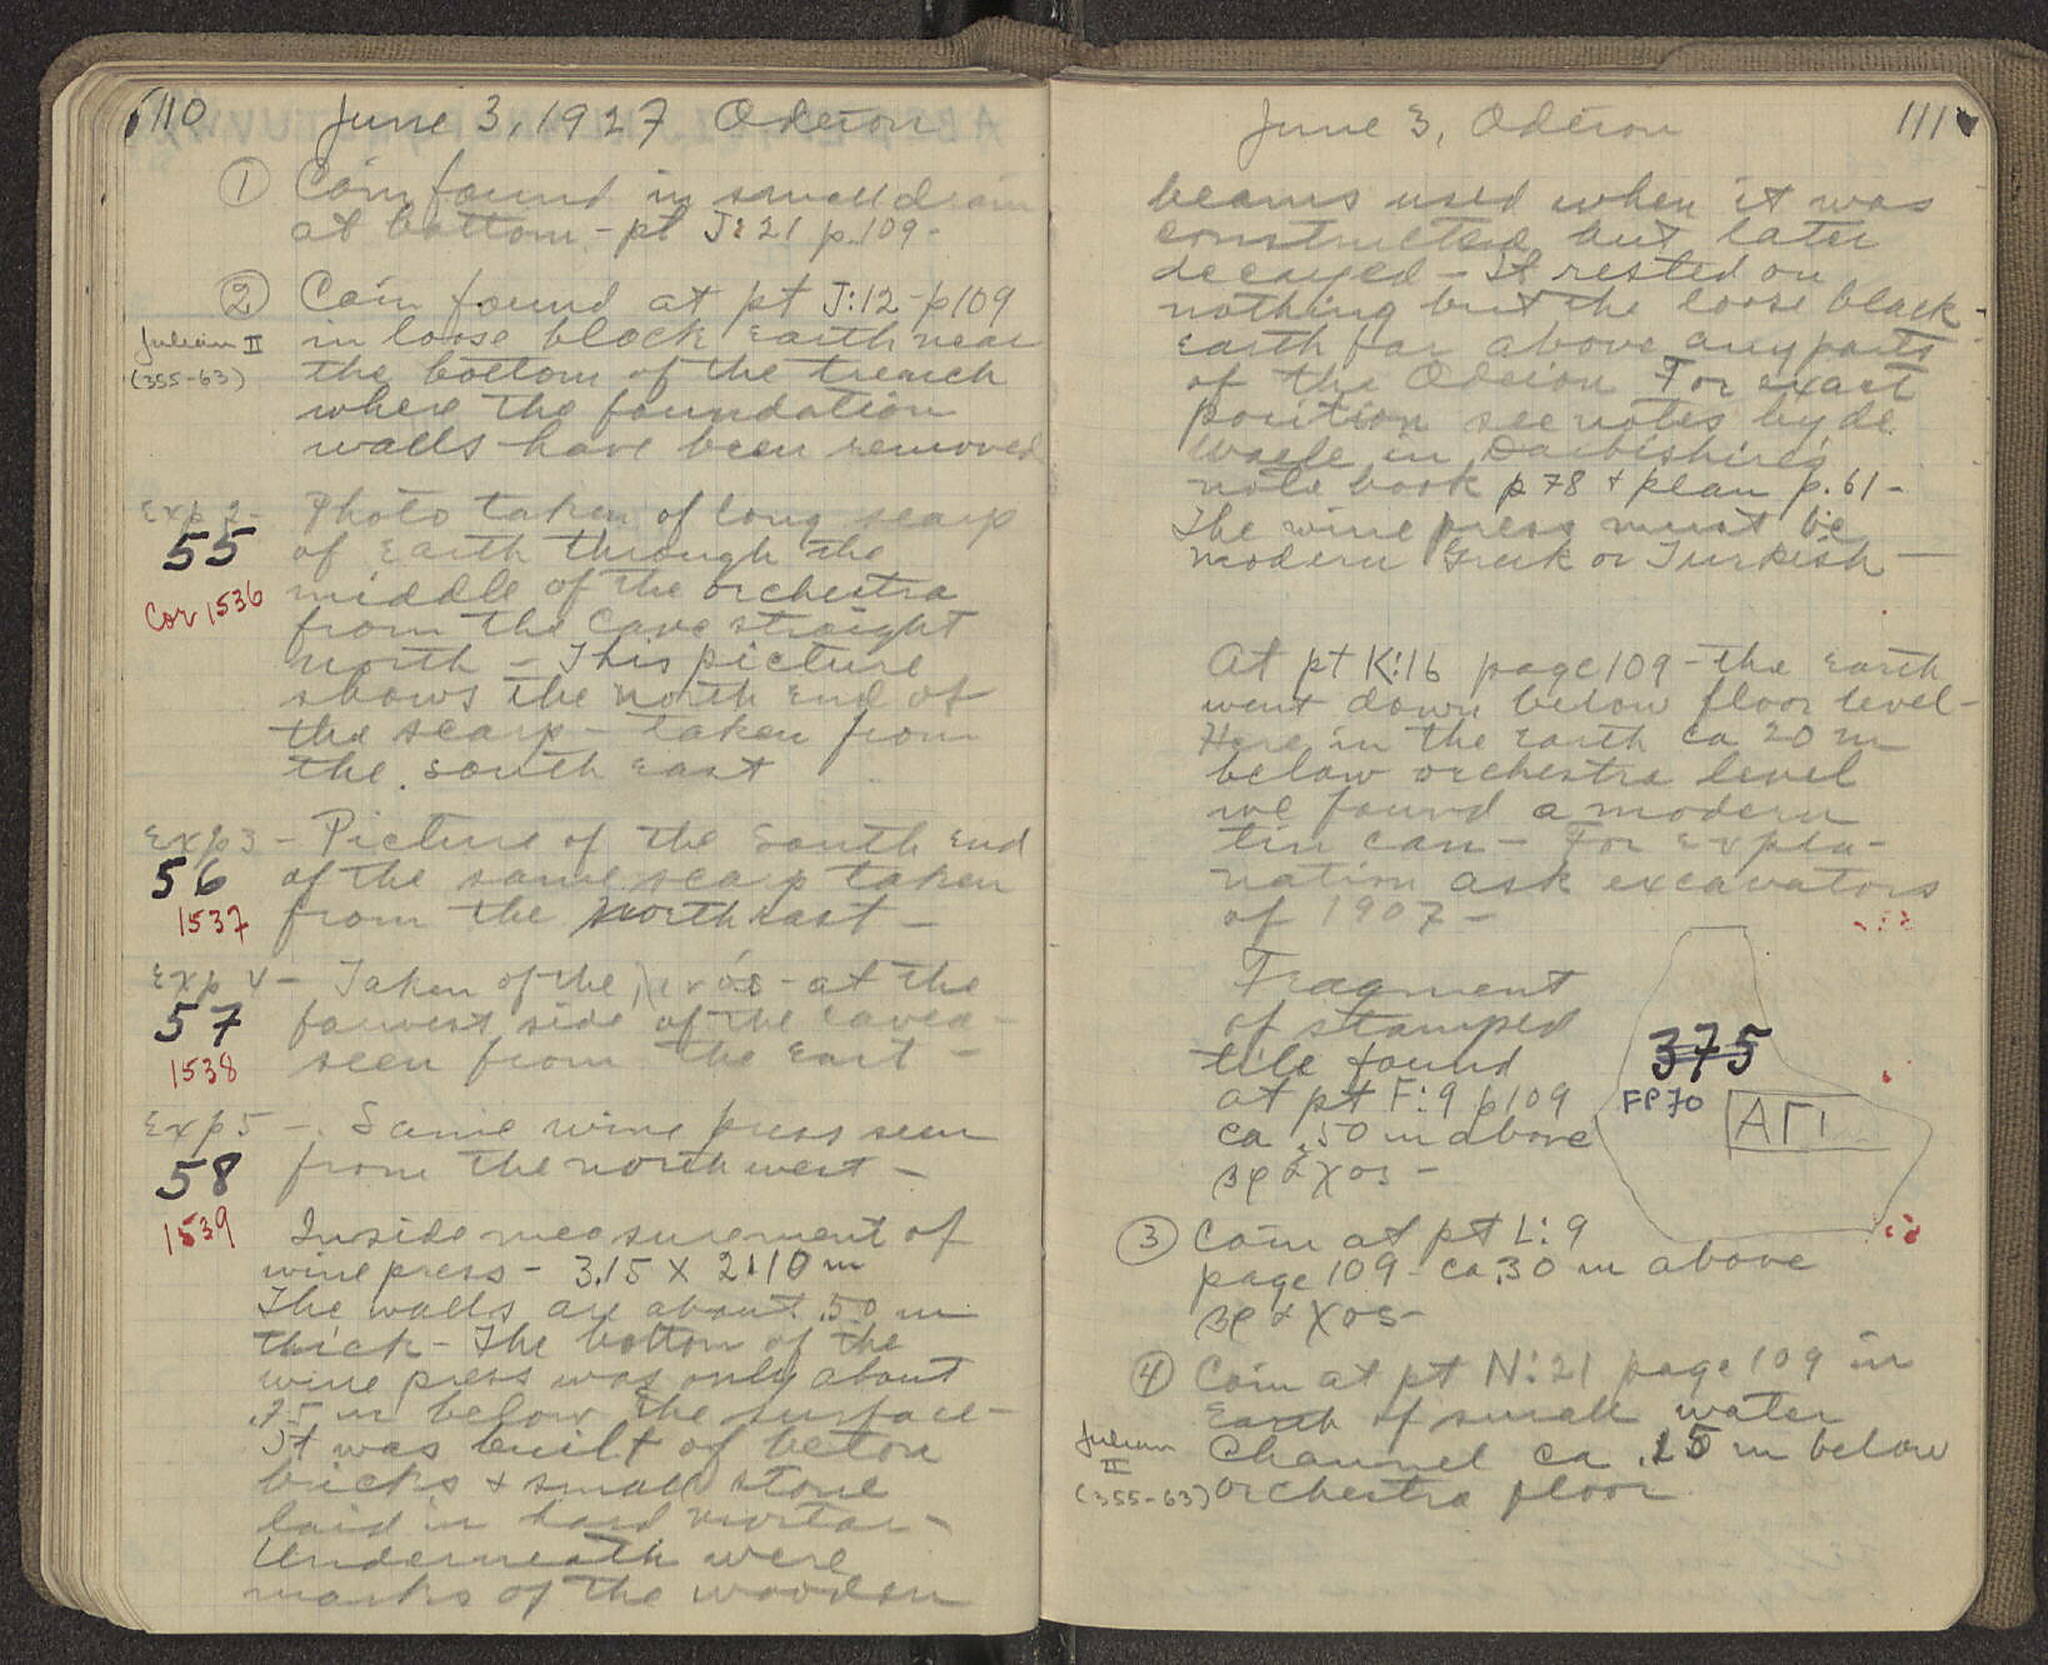 110
June 3, 1927 Odeion
① Coin found in small drain
at bottom - pt J:21 p.109 -
② Coin found at pt J:12 - p109
Julian II
(355-63)
in loose black earth near
the bottom of the trench
where the foundation
walls have been removed
Exp 2 - Photo taken of long scarp
55
of earth through the
Cor 1536
middle of the orchestra
from the cave straight
north - This picture
shows the north end of
the scarp - taken from
the south east
Exp 3 - Picture of the South End
56
of the same scarp taken
1537
from the North east -
Exp 4 - Taken of the ληνός - at the
57
side of the cavea -
1538
seen from the East -
Exp 5 - Same wine press seen
58
from the north west -
1539
Inside measurement of
wine press - 3.15 X 2.10 m
The walls are about .50 m
thick - The bottom of the
wine press was only about
.75 m below the surface -
It was built of beton
bricks + small stone
laid in hard mortar -
Underneath were
marks of the wooden
June 3, Odeion
111
beams used when it was
constructed but later
decayed - It rested on
nothing but the loose black
earth far above any parts
of the Odeion For exact
position see notes by de
Waele in Darbishire's
note book p 78 + plan p. 61 -
The wine press must be
modern Greek or Turkish -
At pt K:16 page 109 - the earth
went down below floor level -
Here in the earth ca 20 m
below orchestra level
we found a modern
tin can - For expla-
nation ask excavators
of 1907 -
Fragment
of stamped
tile found
at pt F:9 p109
ca .50 m above
βραχος -
375
FP 70
ΑΓΙ
③ Coin at pt L:9
page 109 - ca .30 m above
βραχος -
④ Coin at pt N:21 page 109 in
Earth of small water
Julian
II
(355-63)
Channel ca .15 m below
orchestra floor